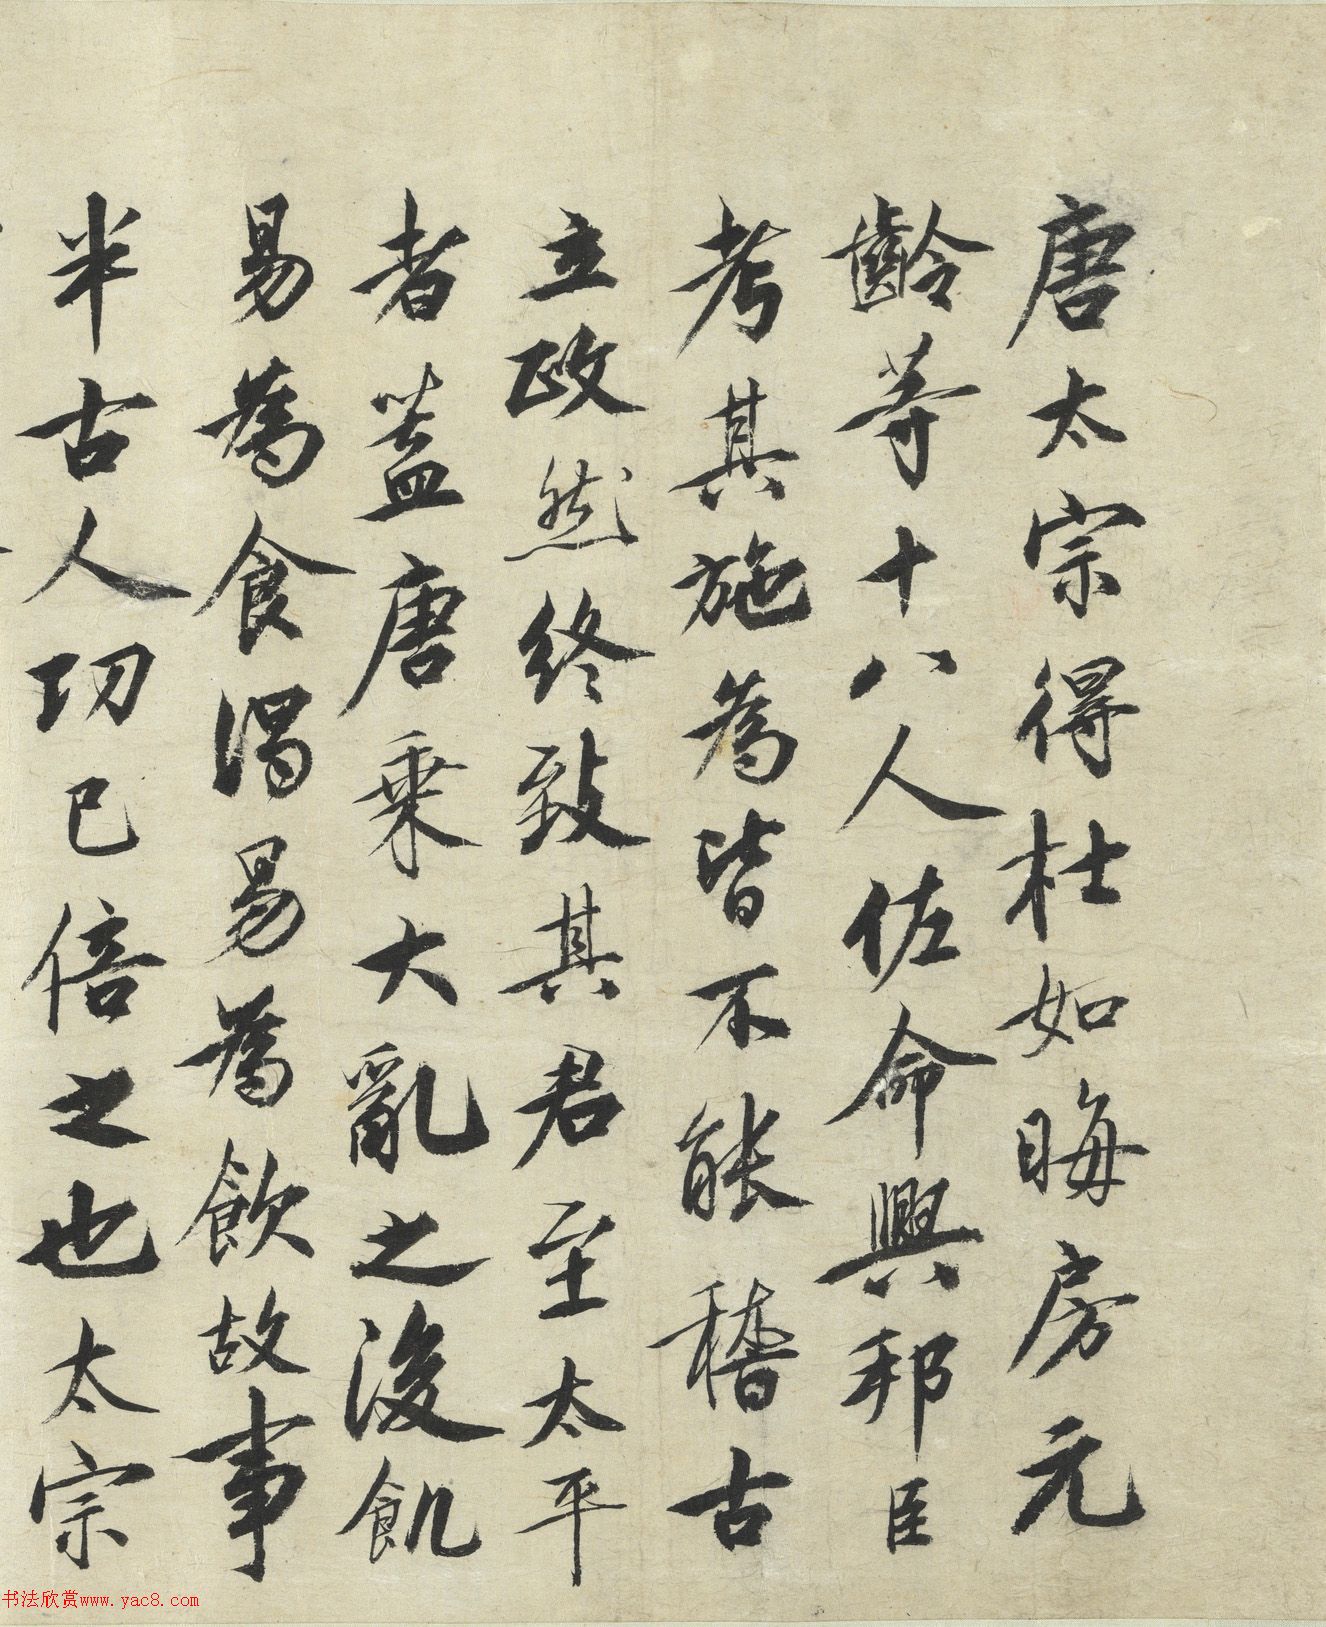 唐太宗得杜如晦房元
齡等十八人佐命興邦臣
考其施為皆不能稽古
立政然終致其君至太平
者蓋唐乘大亂之後飢
易為食渴易為飲故事
半古人功已倍之也太宗
书法欣赏www.yac8.com